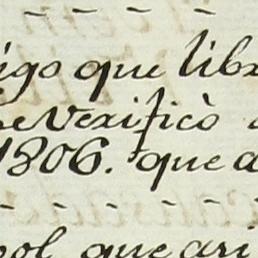 igo que libr
se verificò a
1806. que a
bol que ari